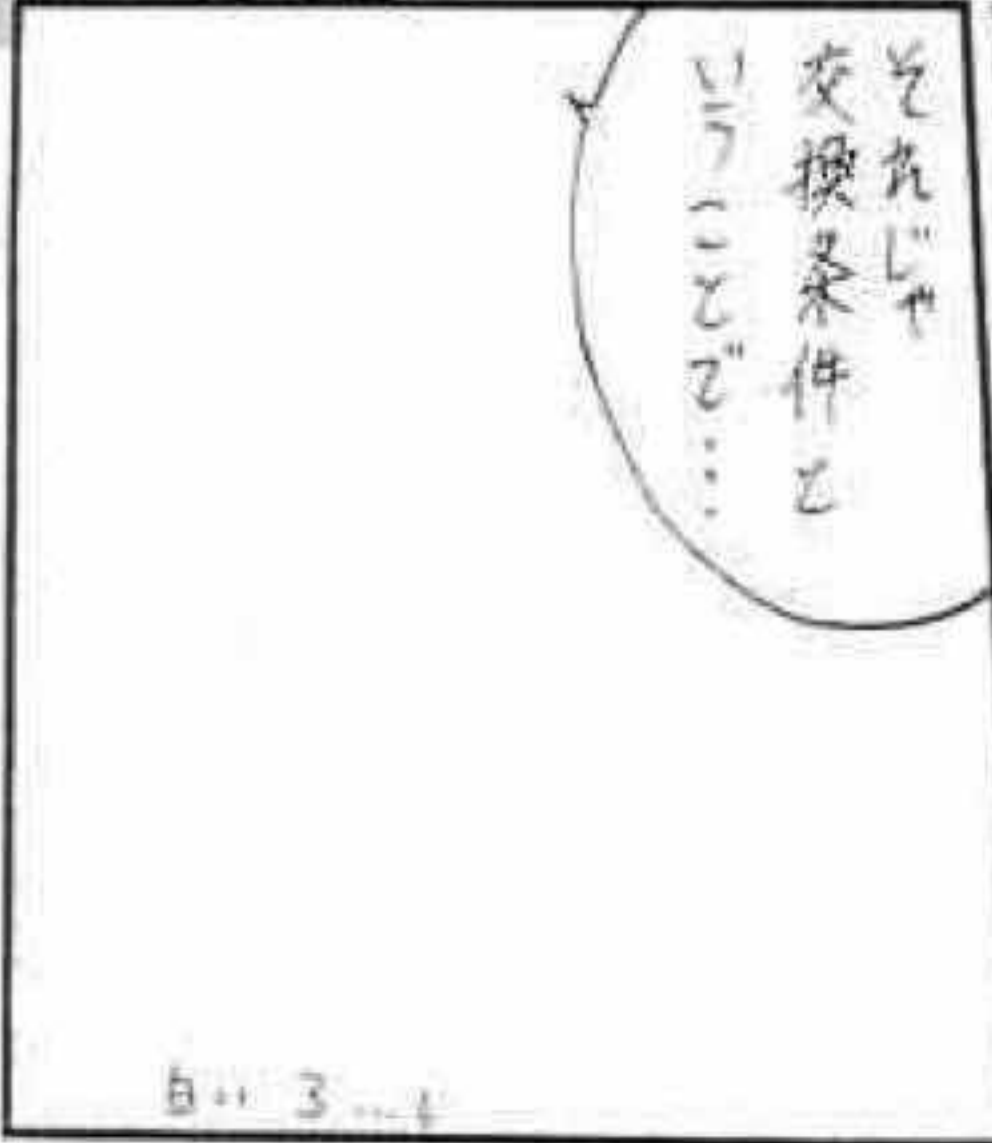 それじゃ
交換条件と
いうことで…